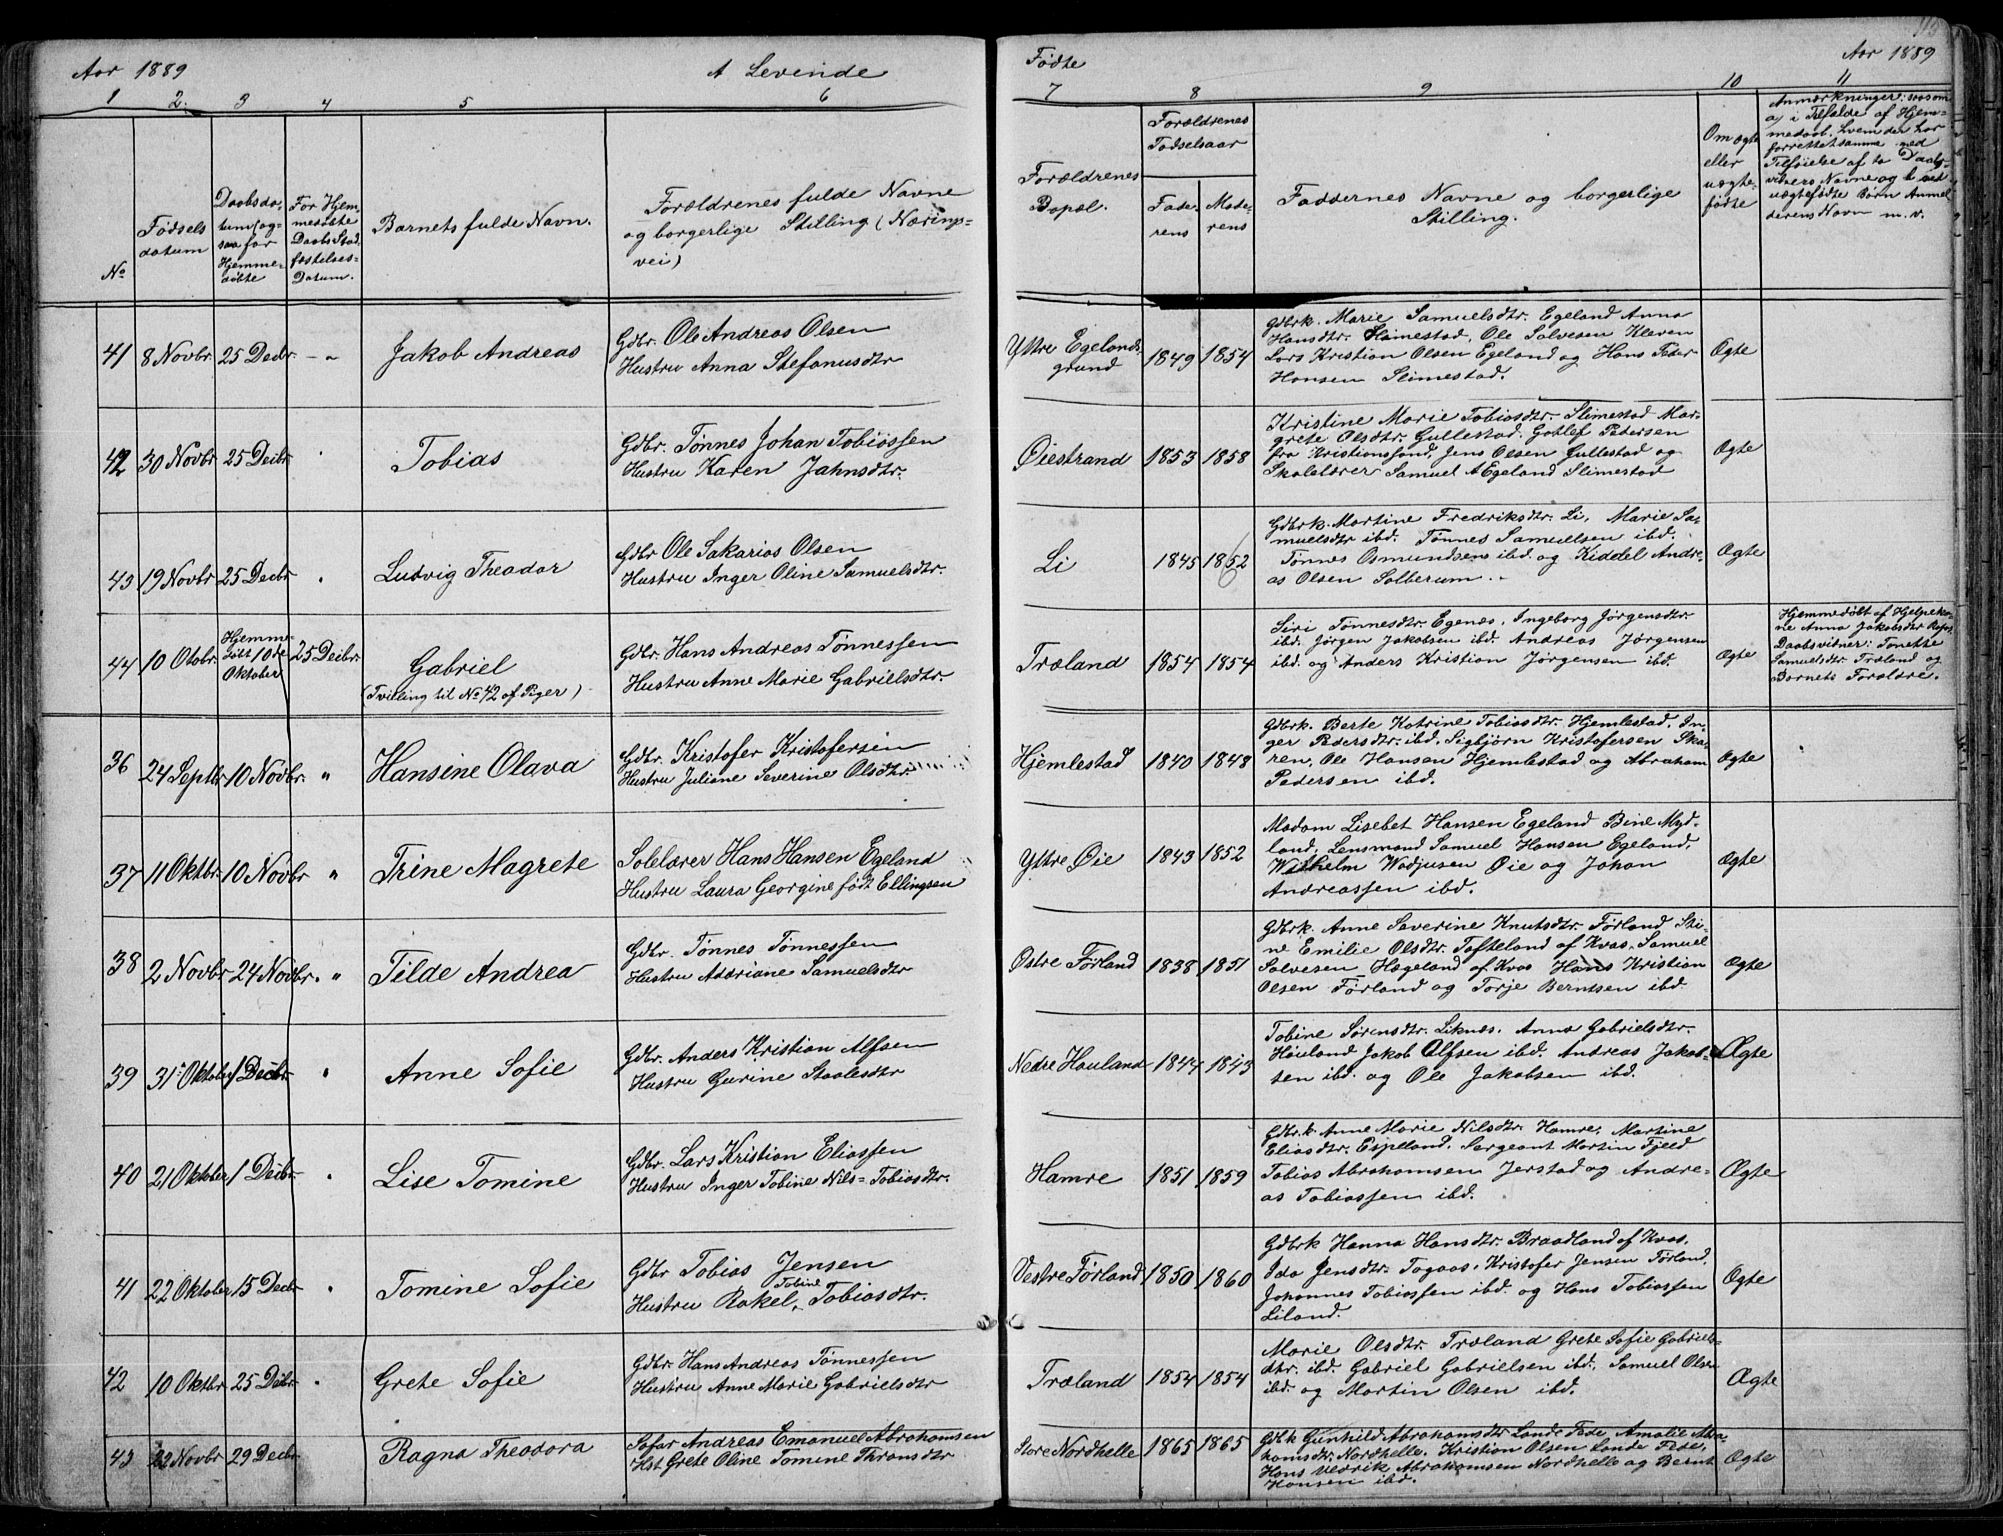 Aar 1889
A Levende
Fødte
Aar 1889
1 2. 3 4 5 6 7 8 9 10 11
No
Fødsels
datum
Daabsda-
tum (og-
saa for
Hjemme-
døbte
For Hjem-
medøbte
Daabs Stad-
fæstelses-
Datum.
Barnets fulde Navn.
Forældrenes fulde Navne
og borgerlige Stilling (Nærings-
vei)
Forældrenes
Bopæl.
Forældrenes
Fødselsaar
Fade-
rens
Mode-
rens
Faddernes Navne og borgerlige
Stilling.
Om ægte
eller
uægte-
fødte
Anmærkninger: saasom
a) i Tilfælde af Hjem-
medaab, hvem der har
forrettet samme med
Tilføielse af to Daabs-
vidners Navne og b ved
uægtefødte Børn Anmel-
derens Navn m. v.
41 8 Novbr 25 Decbr - " Jakob Andreas
Gdbr. Ole Andreas Olsen
Hustru Anna Stefanusdtr
Yttre Egelands-
grund
1849 1854
Gdbrk. Marie Samuelsdtr. Egeland Anna
Hansdtr. Slimestad, Ole Salvesen Kleven
Lars Kristian Olsen Egeland og Hans Peder
Hansen Slimestad.
Ægte
42 30 Novbr 25 Decbr Tobias
Gdbr. Tønnes Johan Tobiassen
Hustru Karen Jahnsdtr.
Øiestrand 1853 1858
Kristine Marie Tobiasdtr. Slimestad Mar-
grete Olsdtr. Gullestad. Gotlef Pedersen
fra Kristiansand, Jens Olsen Gullestad og
Skolelærer Samuel A Egeland Slimestad
Ægte
43 19 Novbr 25 Decbr " Ludvig Theodor
Gdbr Ole Sakarias Olsen
Hustru Inger Oline Samuelsdtr.
Li 1845 1852
Gdbrk. Martine Fredriksdtr. Li, Marie Sa-
muelsdtr ibd. Tønnes Samuelsen ibd.
Tønnes Osmundsens ibd. og Kiddel Andre-
as Olsen Solberum.
Ægte
44 10 Otobr Hjemme-
døbt 10de
Oktober 25 Deibr. Gabriel
(Tvilling til No 42 af Piger)
Gdbr. Hans Andreas Tønnessen
Hustru Anne Marie Gabrielsdtr.
Træland 1854 1854
Siri Tønnesdtr. Egenæs, Ingeborg Jørgensdtr.
ibd. Jørgen Jakobsen ibd. Andreas Jørgensen
ibd. og Anders Kristian Jørgensen ibd.
Ægte
Hjemmedøbt af Hjelpeko-
ne Anna Jakobsdtr
Daabsvidner: Tonette
Samuelsdtr. Træland og
Barnets Forældre.
36 24 Septbr 10 Novbr. " Hansine Olava
Gdbr. Kristofer Kristofersen
Hustru Juliane Severine Olsdtr.
Hjemlestad 1840 1848
Gdbrk. Berte Katrine Tobiasdtr. Hjemlestad. In-
ger Pedersdtr. ibd. Sigbjørn Kristofersen Ska-
ren, Ole Hansen Hjemlestad og Abraham
Pedersen ibd.
Ægte
37 11 Oktbr 10 Novbr " Trine Magrete
Solelærer Hans Hansen Egeland
Hustru Laura Georgine født Ellingsen
Yttre Øie 1843 1852
Madam Lisebet Hansen Egeland Bine Myd-
land, Lensmand Samuel Hansen Egeland,
Wilhelm Wadjusen Øie og Johan
Andreassen ibd.
Ægte
38 2 Novbr 24 Novbr. " Tilde Andrea
Gdbr. Tønnes Tønnessen
Hustru Addriane Samuelsdtr
Østre Førland 1838 1851
Gdbrk. Anne Severine Knutsdtr. Førland Sti-
ne Emilie Olsdtr. Tofteland af Kvas, Samuel
Salvesen Hægeland af Kvas Hans Kristian
Olsen Førland og Torje Berntsen ibd.
Ægte
39 31 Oktober 1 Decbr. " Anne Sofie
Gdbr. Anders Kristian Alfsen
Hustru Gurine Staalesdtr
Nedre Hauland 1844 1843
Tobine Sørensdtr. Liknæs. Anna Gabrielsdtr.
Høiland Jakob Alfsen ibd. Andreas Jakob-
sen ibd. og Ole Jakobsen ibd.
Ægte
40 21 Oktober 1 Decbr. Lise Tomine
Gdbr. Lars Kristian Eliassen
Hustru Inger Tobine Nils= Tobiasdtr.
Hamre 1851 1859
Gdbrk. Anne Marie Nilsdtr. Hamre, Martine
Eliasdtr. Espeland. Sergeant Martin Fjeld
Tobias Abrahamsen Jerstad og Andre-
as Tobiassen ibd.
Ægte
41 22 Oktober 15 Decbr Tomine Sofie
Gdbr Tobias Jensen
Tobine
Hustru Rakel, Tobiasdtr.
Vestre Førland 1850 1860
Gdbrk Hanna Hansdtr. Braadland af Kvas,
Ida Jensdtr. Tagaas, Kristofer Jensen Førland,
Johannes Tobiassen ibd. og Hans Tobiassen
Liland.
Ægte
42 10 Oktbr 25 Decbr Grete Sofie
Gdbr. Hans Andreas Tønnessen
Hustru Anne Marie Gabrielsdtr
Træland 1854 1854
Marie Olsdtr. Træland Grete Sofie Gabriels-
dtr. ibd. Gabriel Gabrielsen ibd. Samuel Olsen
ibd. og Martin Olsen ibd.
Ægte
43 22 Novbr 29 Decbr Ragna Theodora
Søfar Andreas Emanuel Abrahamsen
Hst Grete Oline Tomine Thronsdtr
Store Nordhelle 1865 1865
Gdbk Gunhild Abrahamsdtr Lande Fede, Amalie Abra-
hamsdtr. Nordhelle, Kristian Olsen Lande Fede,
Hans Vedrik Abrahamsen Nordhelle og Bernt
Hansen ibd.
Ægte